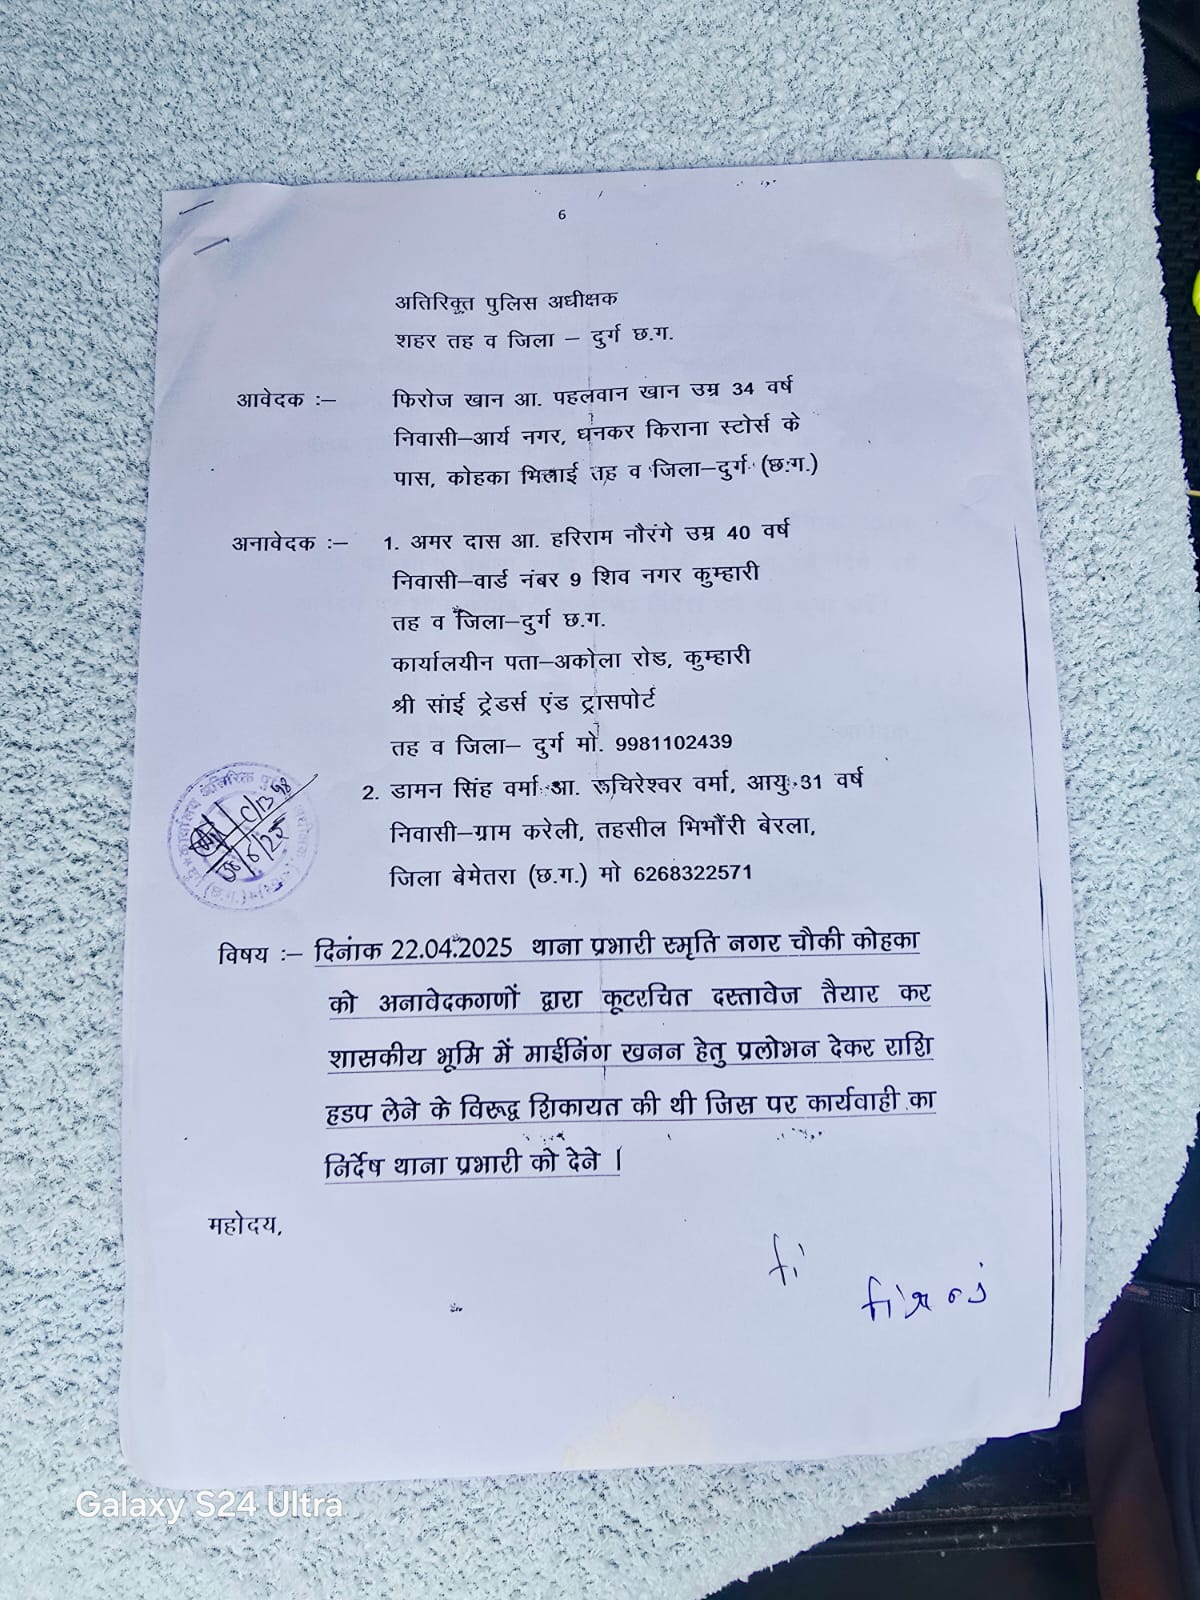 6
अतिरिक्त पुलिस अधीक्षक
शहर तह व जिला – दुर्ग छ.ग.
आवेदक :– फिरोज खान आ. पहलवान खान उम्र 34 वर्ष
निवासी–आर्य नगर, धनकर किराना स्टोर्स के
पास, कोहका भिलाई तह व जिला–दुर्ग (छ.ग.)
अनावेदक :– 1. अमर दास आ. हरिराम नौरंगे उम्र 40 वर्ष
निवासी–वार्ड नंबर 9 शिव नगर कुम्हारी
तह व जिला–दुर्ग छ.ग.
कार्यालयीन पता–अकोला रोड, कुम्हारी
श्री सांई ट्रेडर्स एंड ट्रासपोर्ट
तह व जिला– दुर्ग मो. 9981102439
2. डामन सिंह वर्मा आ. रूचिरेश्वर वर्मा, आयु 31 वर्ष
निवासी–ग्राम करेली, तहसील भिभौंरी बेरला,
जिला बेमेतरा (छ.ग.) मो 6268322571
कार्यालय अतिरिक्त
विषय :– दिनांक 22.04.2025 थाना प्रभारी स्मृति नगर चौकी कोहका
को अनावेदकगणों द्वारा कूटरचित दस्तावेज तैयार कर
शासकीय भूमि में माईनिंग खनन हेतु प्रलोभन देकर राशि
हडप लेने के विरूद्व शिकायत की थी जिस पर कार्यवाही का
निर्देष थाना प्रभारी को देने ।
महोदय,
Galaxy S24 Ultra